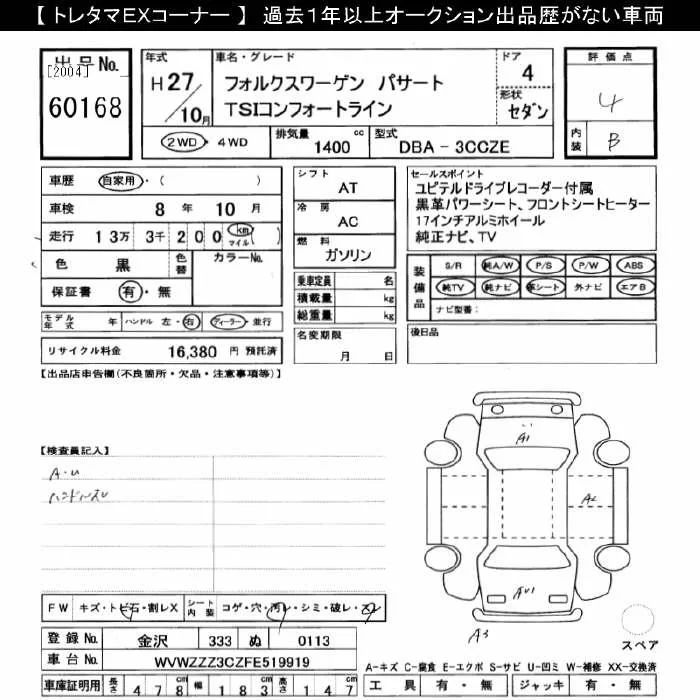 【 トレタマEXコーナー 】 過去１年以上オークション出品歴がない車両
出品No.
[2004]
60168
年式
H27/10月
車名・グレード
フォルクスワーゲン パサート
TSIコンフォートライン
ドア
4
形状
セダン
評価点
4
内装
B
2WD・4WD
排気量
1400 cc
型式
DBA - 3CCZE
車歴 自家用・( )
車検 8 年 10 月
走行 13万 3千 200 km マイル ( )
色 黒 色替 カラーNo.
保証書 有・無
シフト
AT
冷房
AC
燃料
ガソリン
セールスポイント
ユピテルドライブレコーダー付属
黒革パワーシート、フロントシートヒーター
17インチアルミホイール
純正ナビ、TV
乗車定員 名
積載量 kg
総重量 kg
装備品
S/R 純A/W P/S P/W ABS
純TV 純ナビ 革シート 外ナビ エアB
ナビ型番：
モデル年式 年 ハンドル 左・右 ディーラー・並行
リサイクル料金 16,380 円 預託済
名変期限
月 日
後日品
【出品店申告欄(不良箇所・欠品・注意事項等)】
【検査員記入】
A・U
ハンドルスレ
A1
A2
AU1
A3
FW キズ・トビ石・割レX シート内装 コゲ・穴・汚レ・シミ・破レ・スレ
登録No. 金沢 333 ぬ 0113
車台No. WVWZZZ3CZFE519919
車庫証明用 長さ 478cm 幅 183cm 高さ 147cm
スペア
A-キズ C-腐食 E-エクボ S-サビ U-凹ミ W-補修 XX-交換済
工具 有・無 ジャッキ 有・無